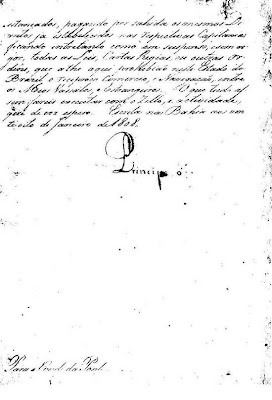 situados, pagando por sahida os mesmos Di-
reitos já estabelecidos nas respectivas Capitanias
ficando entretanto como em suspenso, e sem vi-
gor, todas as Leis, Cartas Regias, ou outras Or-
dens, que athe aqui prohibião neste Estado do
Brazil o reciproco Commercio, e Navegação, entre
os Meus Vassalos, e Estrangeiros. O que tudo as-
sim fareis executar com o Zello, e actividade,
que de vos espero. Escrita na Bahia aos vin-
te oito de Janeiro de 1808.
Principe
Para o Conde da Ponte